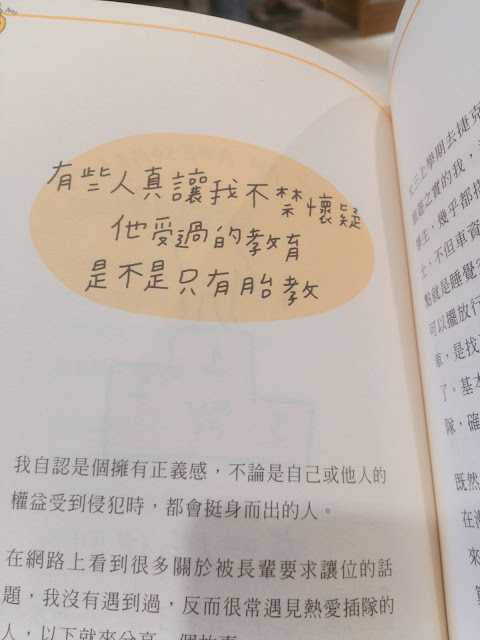 有些人真讓我不禁懷疑
他受過的教育
是不是只有胎教
我自認是個擁有正義感，不論是自己或他人的
權益受到侵犯時，都會挺身而出的人。
在網路上看到很多關於被長輩要求讓位的話
題，我沒有遇到過，反而很常遇見熱愛插隊的
人，以下就來分享一個故事
大三上學期去捷克
旅遊之實的我，
學生，幾乎都搭
士，不但車資
點就是睡覺
可以擺放行
車，是找
了。基本
隊，確
既然
在
來